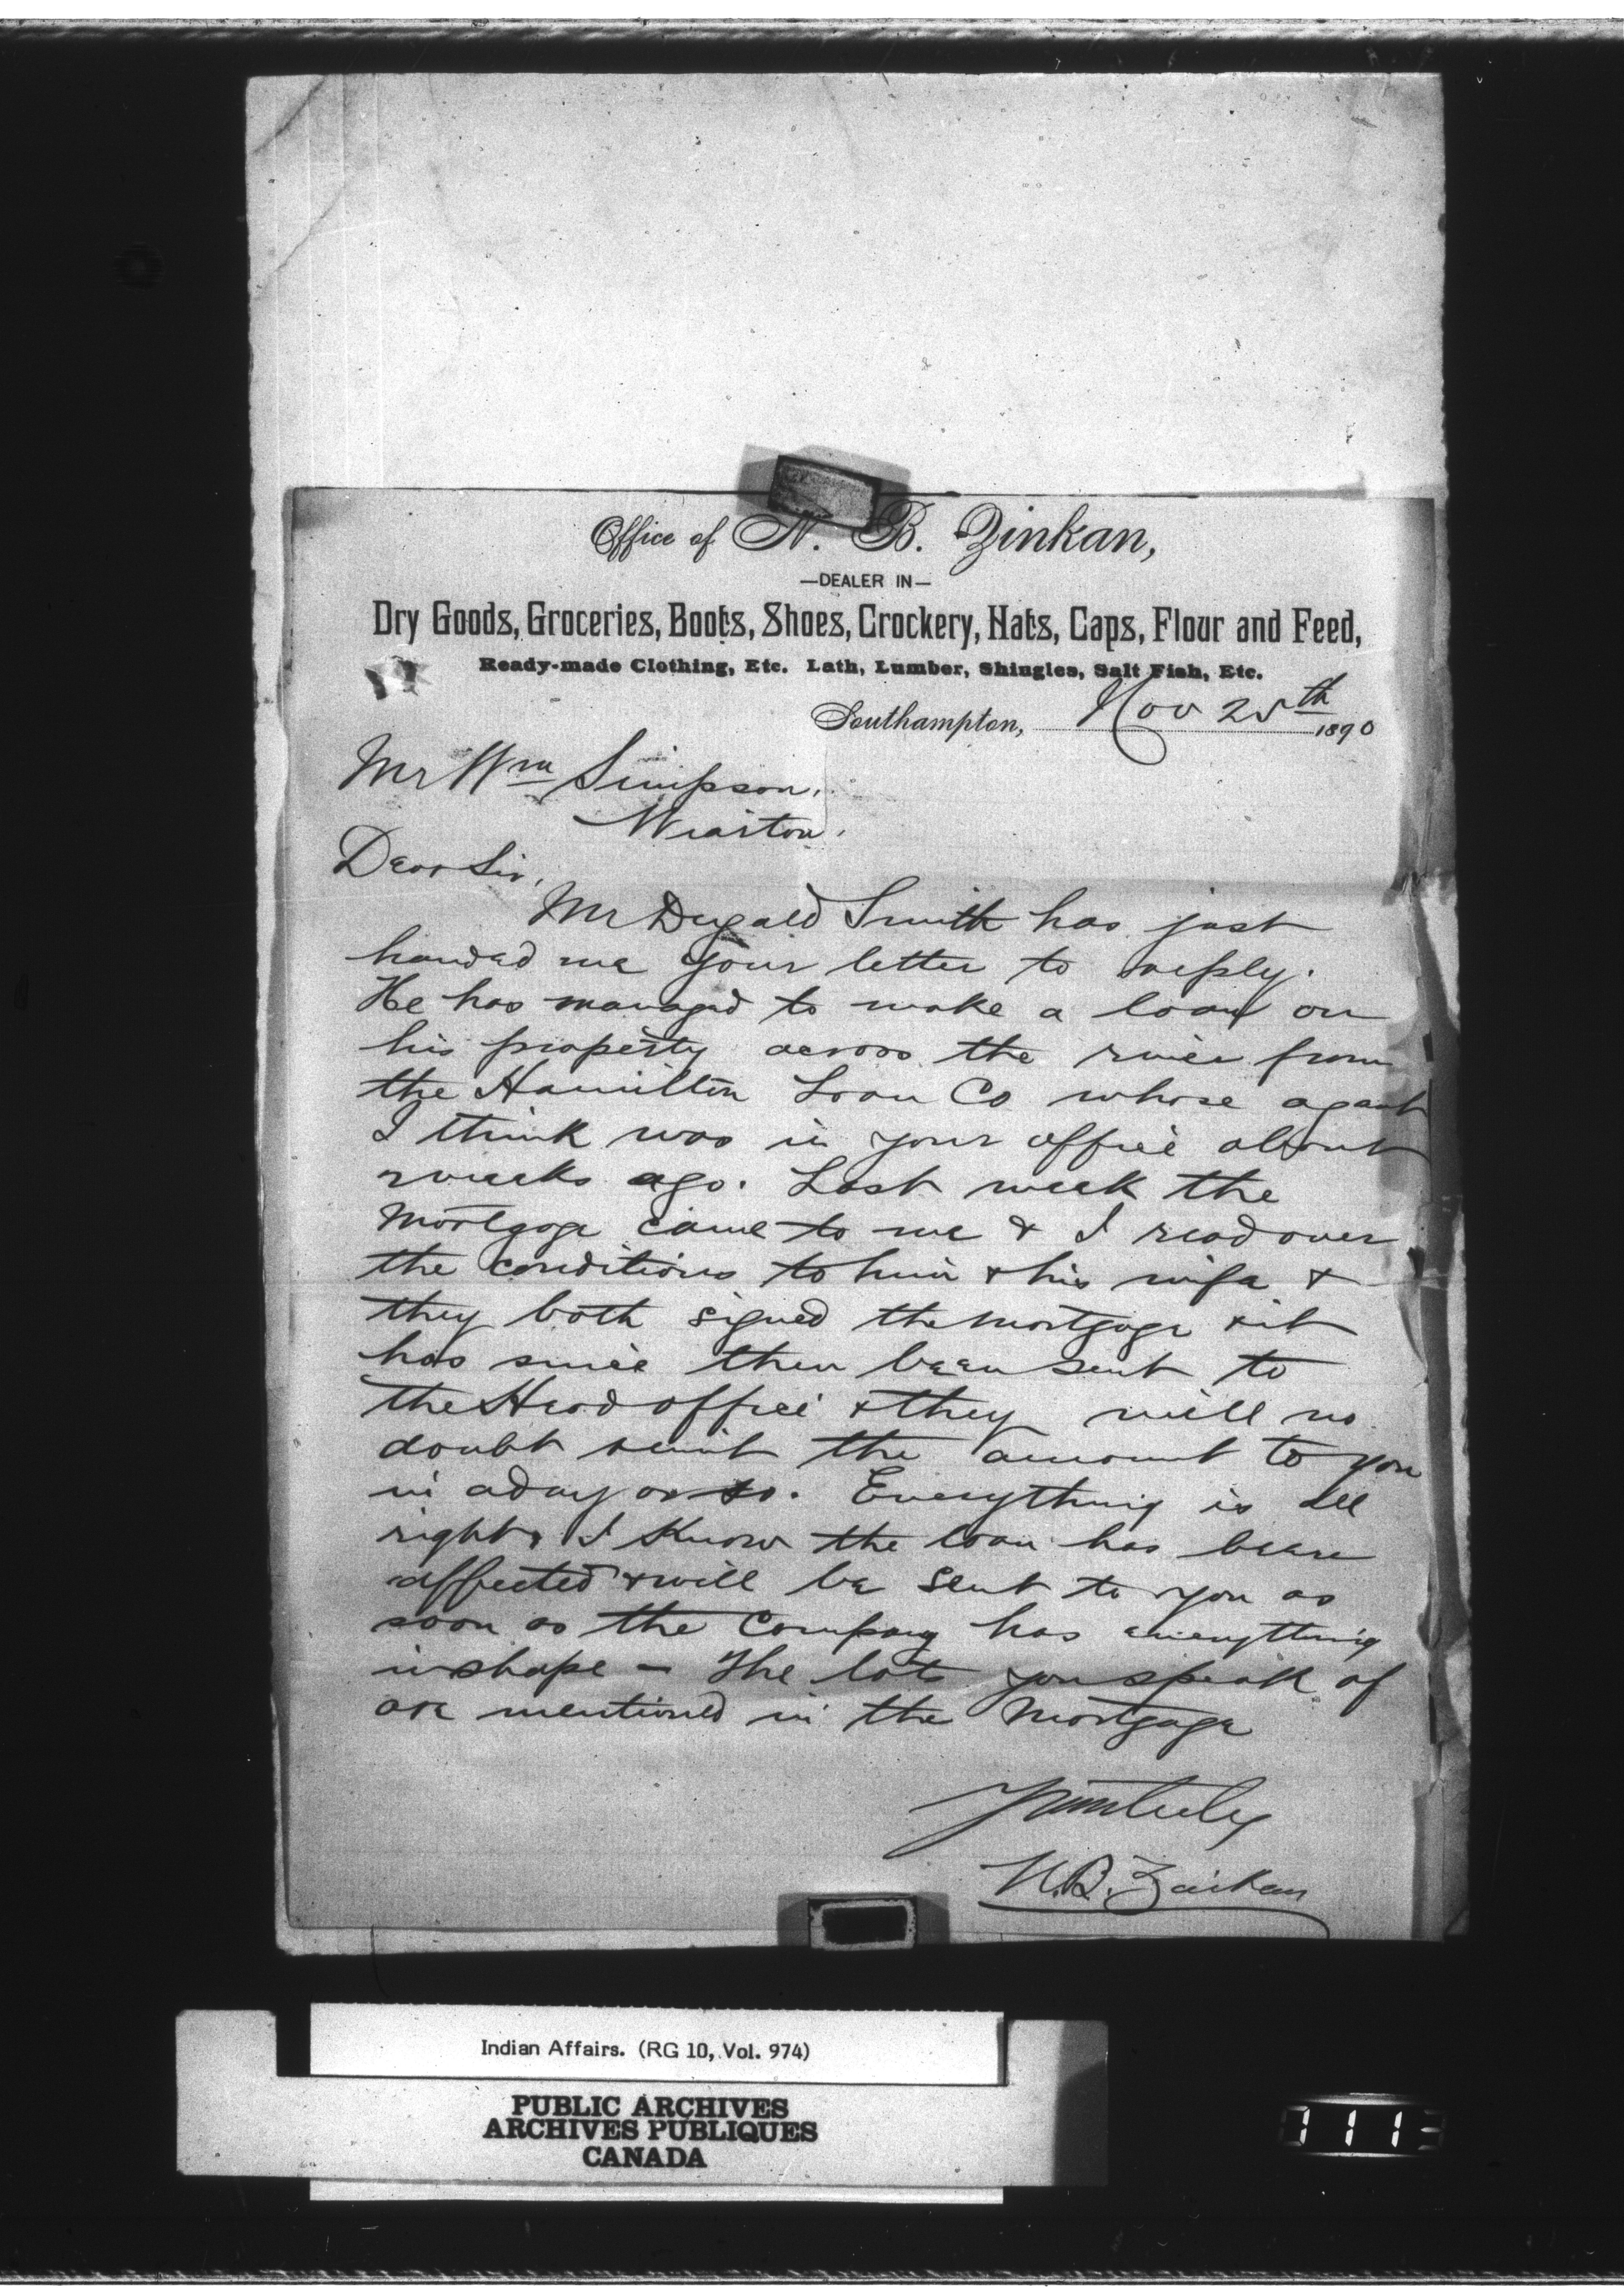 Office of N. B. Zinkan,
—DEALER IN—
Dry Goods, Groceries, Boots, Shoes, Crockery, Hats, Caps, Flour and Feed,
Ready-made Clothing, Etc. Lath, Lumber, Shingles, Salt Fish, Etc.
Southampton, Nov 25th 1890
Mr Wm Simpson.
Wiarton.
Dear Sir,
Mr Dugald Smith has just
handed me your letter to reply.
He has managed to make a loan on
his property across the river from
the Hamilton Loan Co whose agent
I think was in your office about
weeks ago. Last week the
Mortgage came to me & I read over
the conditions to him & his wife &
they both signed the mortgage & it
has since then been sent to
the Head office & they will no
doubt remit the amount to you
in a day or so. Everything is all
right, I know the loan has been
affected & will be sent to you as
soon as the Company has everything
in shape – The lots you speak of
are mentioned in the Mortgage
Yours truly
N.B. Zinkan
Indian Affairs. (RG 10, Vol. 974)
PUBLIC ARCHIVES
ARCHIVES PUBLIQUES
CANADA
111